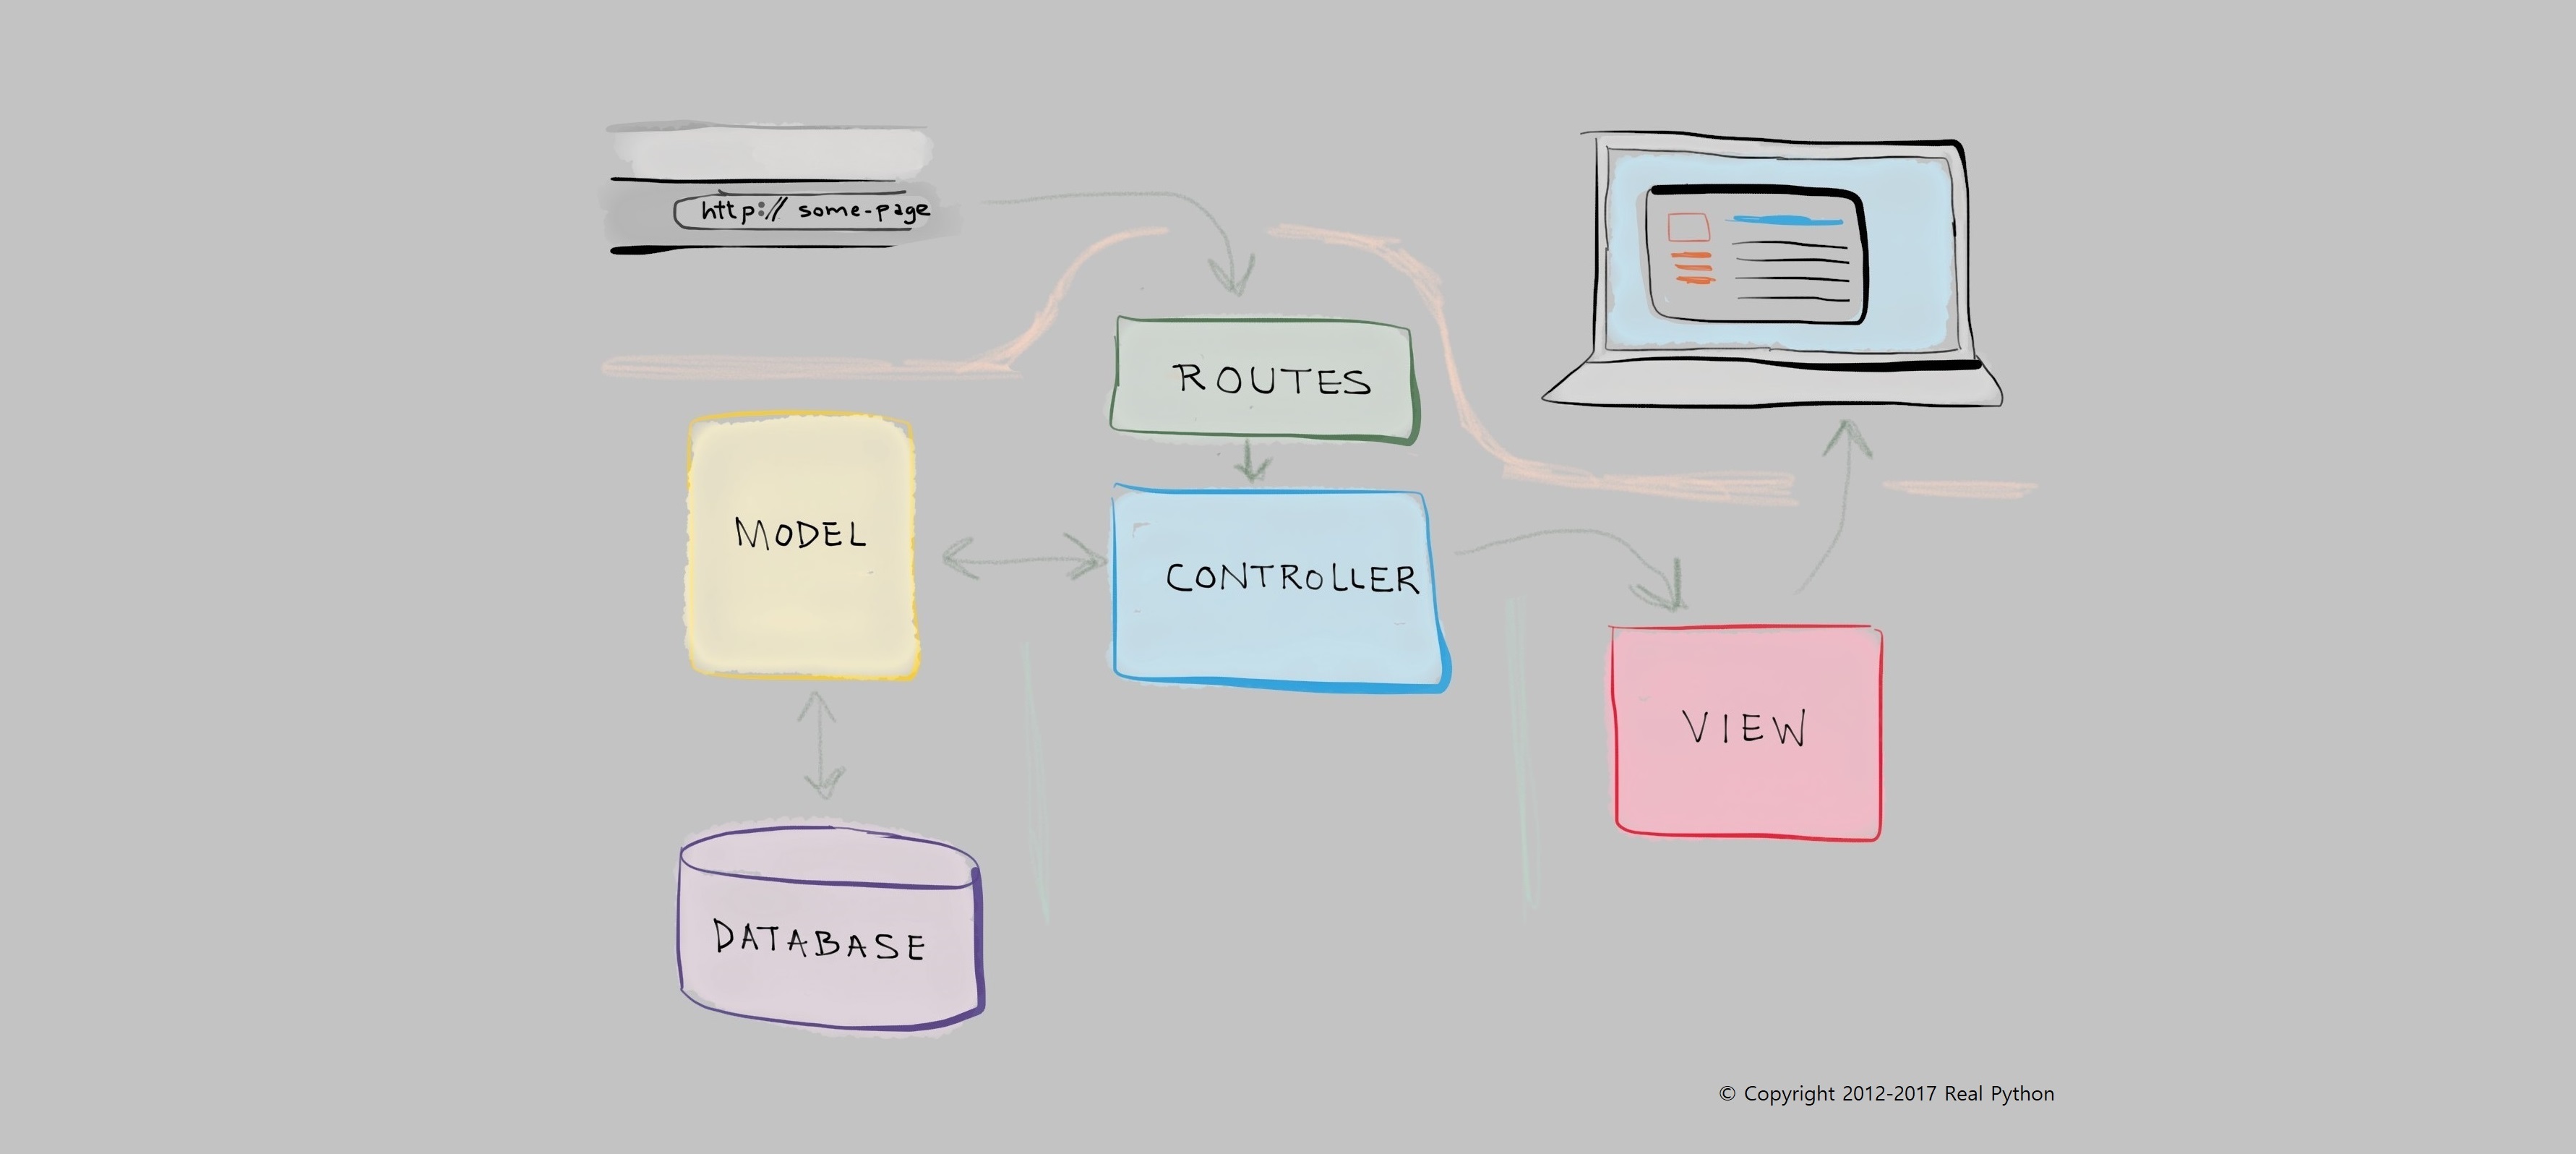 http:// some-page
ROUTES
MODEL
CONTROLLER
VIEW
DATABASE
© Copyright 2012-2017 Real Python